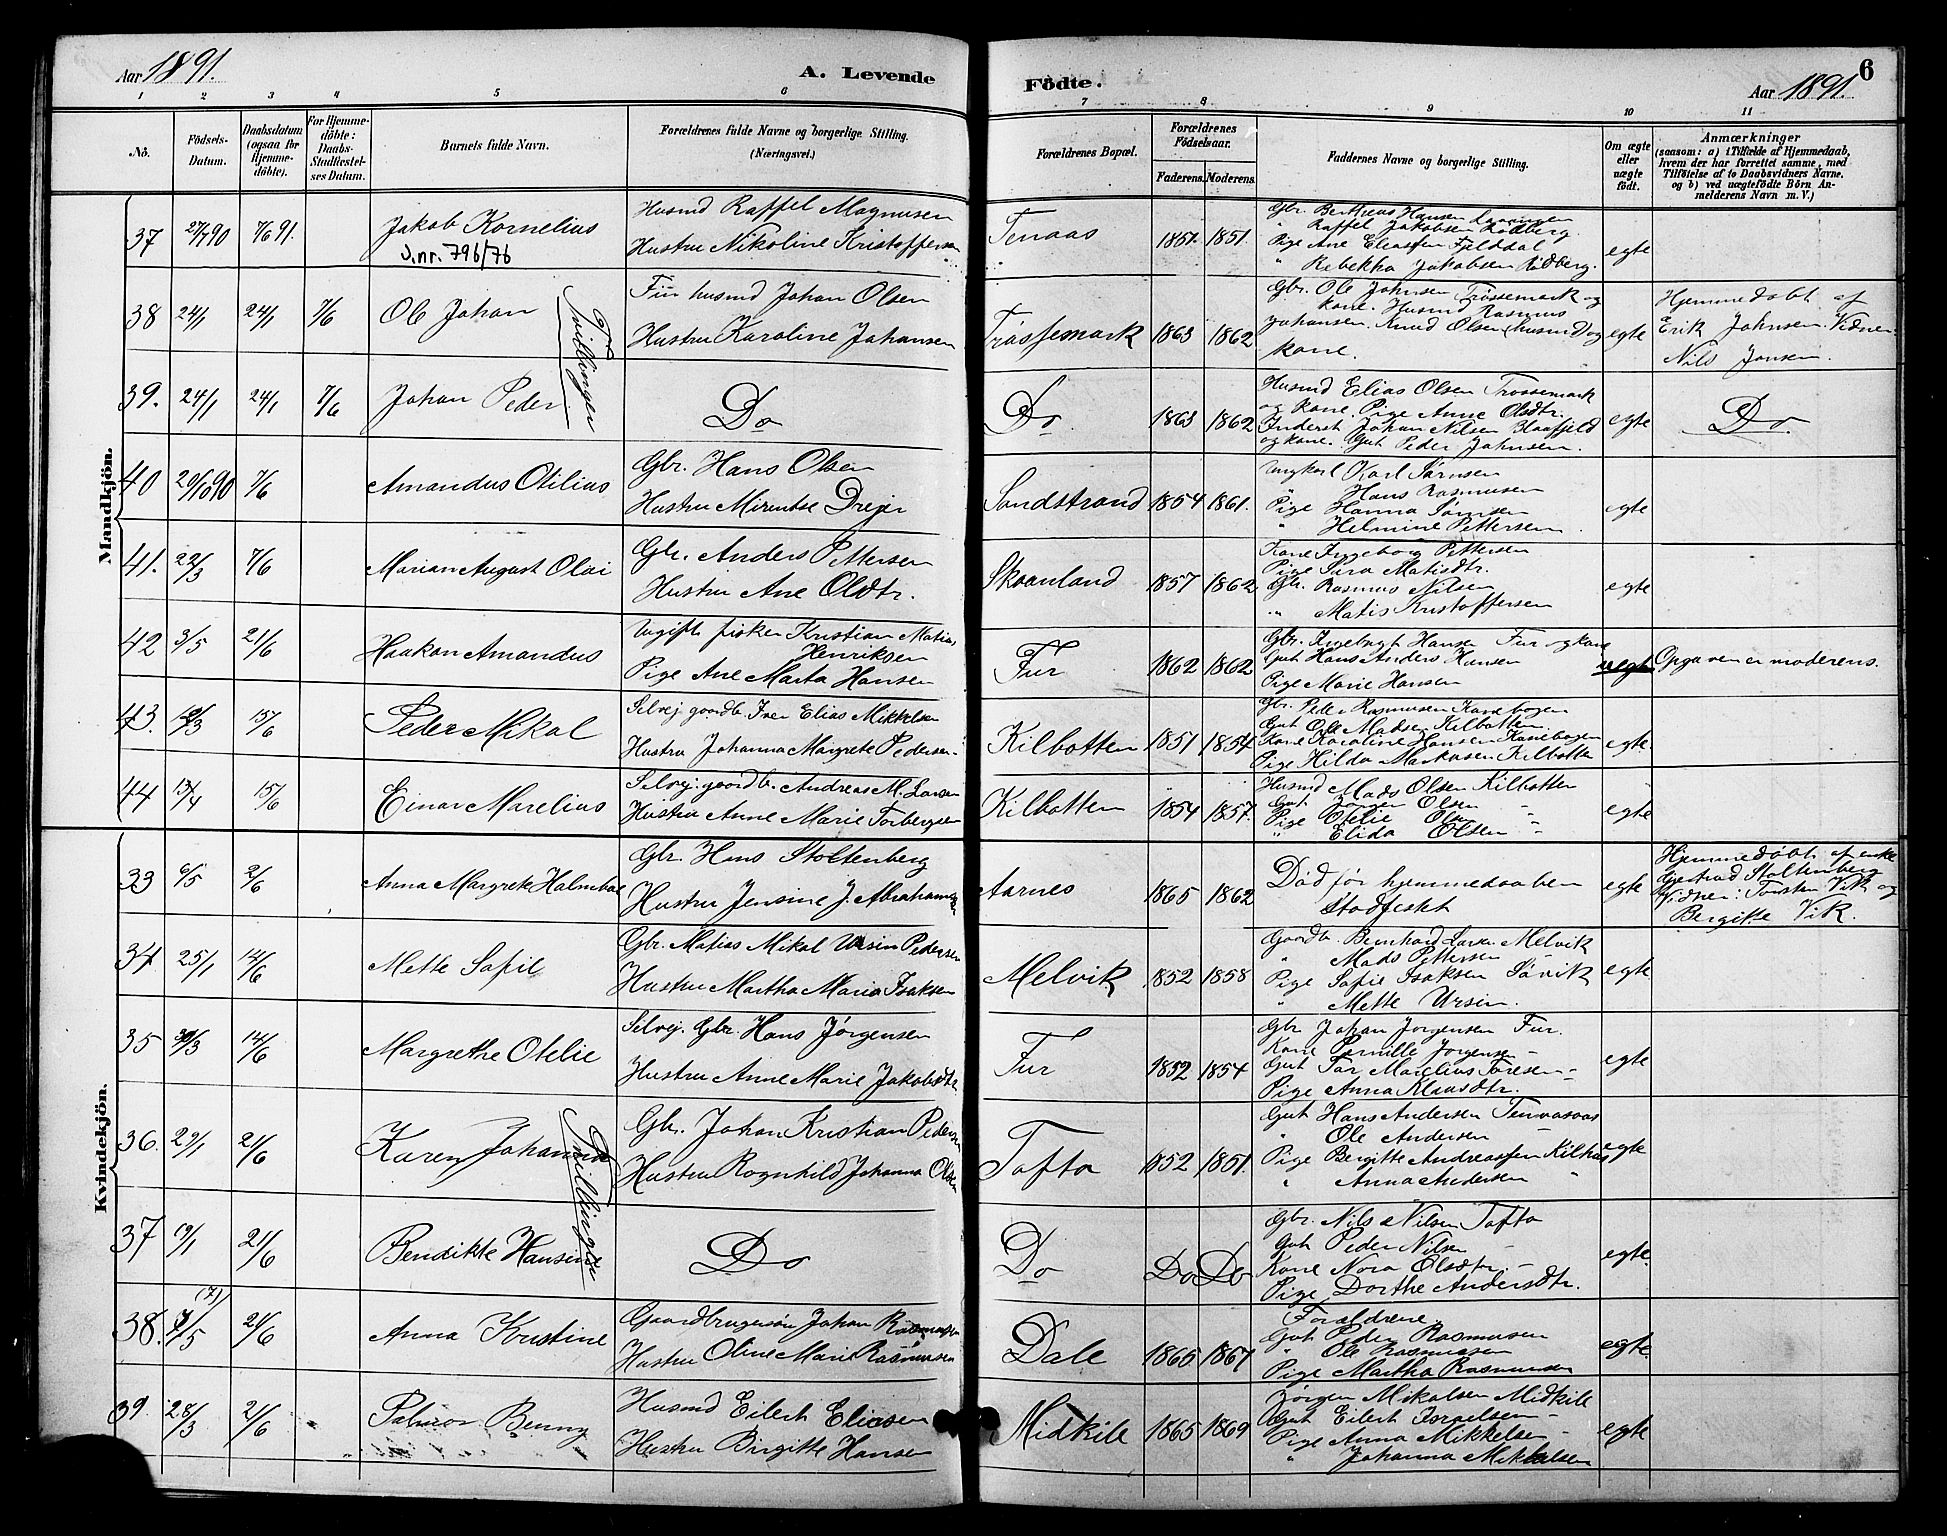 Aar 1891.
A. Levende
Födte.
6
Aar 1891.
1 2 3 4 5 6 7 8 9 10 11
No.
Födsels-Datum.
Daabsdatum (ogsaa for Hjemme-döbte).
For Hjemme-döbte: Daabs-Stadfæstel-ses Datum.
Barnets fulde Navn.
Forældrenes fulde Navne og borgerlige Stilling.
(Næringsvei.)
Forældrenes Bopæl.
Forældrenes Födselsaar.
Faderens. Moderens.
Faddernes Navne og borgerlige Stilling.
Om ægte eller uægte födt.
Anmærkninger
(saasom: a) i Tilfælde af Hjemmedaab, hvem der har forrettet samme, med Tilföielse af to Daabsvidners Navne, og b) ved uægtefödte Börn An-melderens Navn m. V.)
Mandkjön.
37 27/7 90 7/6 91. Jakob Kornelius
J.nr. 796/76
Husmd Raffel Magnusen
Hustru Nikoline Kristoffersen
Tenaas 1851. 1851.
Gbr. Berteus Hansen
" Raffel Jakobsen Rödberg.
Pige Ane Eliassen Fjelddal
" Rebekka Jakobsen Rödberg.
egte
38 24/1 24/1 7/6 Ole Johan
Tvillinger
husmd Johan Olsen
Hustru Karoline Johansen
Trössemark 1863 1862
Gbr. Ole Johnsen Trössemark og
kone. Husmd Rasmus
Johansen. Knud Olsen (husmd) og
kone.
egte
Hjemmedöbt af
Erik Johnsen. Vidner
Nils Jonsen.
39. 24/1 24/1 7/6 Johan Peder
Do
Do. 1863 1862
Husmd Elias Olsen Trossemark
og kone. Pige Anne Olsdtr.
Inderst Johan Nilsen Blaafjeld
og kone. Gut Peder Johnsen.
egte
Do.
40 20/10 90 7/6 Amandus Otilius
Gbr. Hans Olsen
Hustru Mirentse Drejer
Sandstrand 1854 1861.
Ungkarl Karl Sörnsen
" Hans Rasmusen
Pige Hanna Sörnsen
" Helmine Pettersen.
egte
41. 22/3 7/6 Marian August Olai
Gbr. Anders Pettersen
Hustru Ane Olsdtr.
Skaanland 1857 1862
Kone Ingeborg Pettersen
Pige Sara Matisdtr.
Gbr. Rasmus Nilsen
" Matis Kristoffersen
egte
42 3/5 21/6 Haakon Amandus
Ugift fisker Kristian Matias
Henriksen
Pige Ane Marta Hansen
Fur 1862 1862
Gbr. Ingebrigt Hansen Fur og kone
Gut Hans Anders Hansen
Pige Marie Hansen
uegte
Opgaven er moderens.
43. 12/3 15/6 Peder Mikal
Selvej. gaardb. Iver Elias Mikkelsen
Hustru Johanna Margrete Pedersen
Kilbotten 1851 1854
Gbr. Peder Rasmusen Kanebogen
Gut Ole Madsen Kilbotten
Kone Karoline Hansen Kanebogen
Pige Hilda Markusen Kilbotten
egte.
44 13/4 15/6 Einar Marelius
Selvej. gaardb. Andreas M. Larsen
Hustru Anne Marie Torbergsen
Kilbotten 1854 1857.
Husmd Mads Olsen Kilbotten
Gut Jörgen Olsen "
Pige Otelie Olsen "
" Elida Olsen "
egte
Kvindekjön.
33 6/5 2/6 Anna Margrete Holmboe
Gbr. Hans Stoltenberg
Hustru Jensine J. Abrahamsen
Aarnes 1865 1862
Död för hjemmedaaben
stadfestet
egte
Hjemmedöbt af enke
Gjertrud Stoltenberg
Vidner: Torsten Vik og
Bergitte Vik.
34. 25/1 14/6 Mette Sofie
Gbr. Matias Mikal Ursin Pedersen
Hustru Martha Maria Isaksen
Melvik 1852 1858
Gaardb. Bernhard Larsen Melvik
" Mads Pettersen "
Pige Sofie Isaksen Sörvik
" Mette Ursin.
egte
35 30/3 14/6 Margrethe Otelie
Selvej. Gbr. Hans Jörgensen
Hustru Anne Marie Jakobsdtr
Fur 1852 1854
Gbr Johan Jorgensen Fur.
Kone Pernille Jorgensen "
Gut Tar Marelius Toresen "
Pige Anna Klausdtr.
egte
36. 29/1 21/6 Karen Johanna
Tvillinger
Gbr. Johan Kristian Pedersen
Hustru Rognhild Johanna Olsen
Tofta 1852 1851.
Gut Hans Andersen Tennvasaas
" Ole Andersen "
Pige Bergitte Andreassen Kilhus
" Anna Andersen "
egte
37 19/1 21/6 Bendikte Hansine
Do
Do Do Do
Gbr. Nils Nilsen Tofta
Gut Peder Nilsen "
Kone Nora Olsdtr. "
Pige Dorthe Andersdtr.
egte.
38. (7) 7/5 21/6 Anna Kristine
Gaardbrugersön Johan Rasmussen
Hustru Oline Marie Rasmusen
Dale 1865 1867
Forældrene
Gut Peder Rasmusen
" Ole Rasmusen
Pige Martha Rasmusen
egte.
39. 28/3 21/6 Palmor Benny
Husmd Eilert Eliasen
Hustru Birgitte Hansen
Midkile 1865 1869
Jörgen Mikalsen Midkile
Gut Eilert Israelsen "
Pige Anna Mikkelsen "
" Johanna Mikkelsen
egte